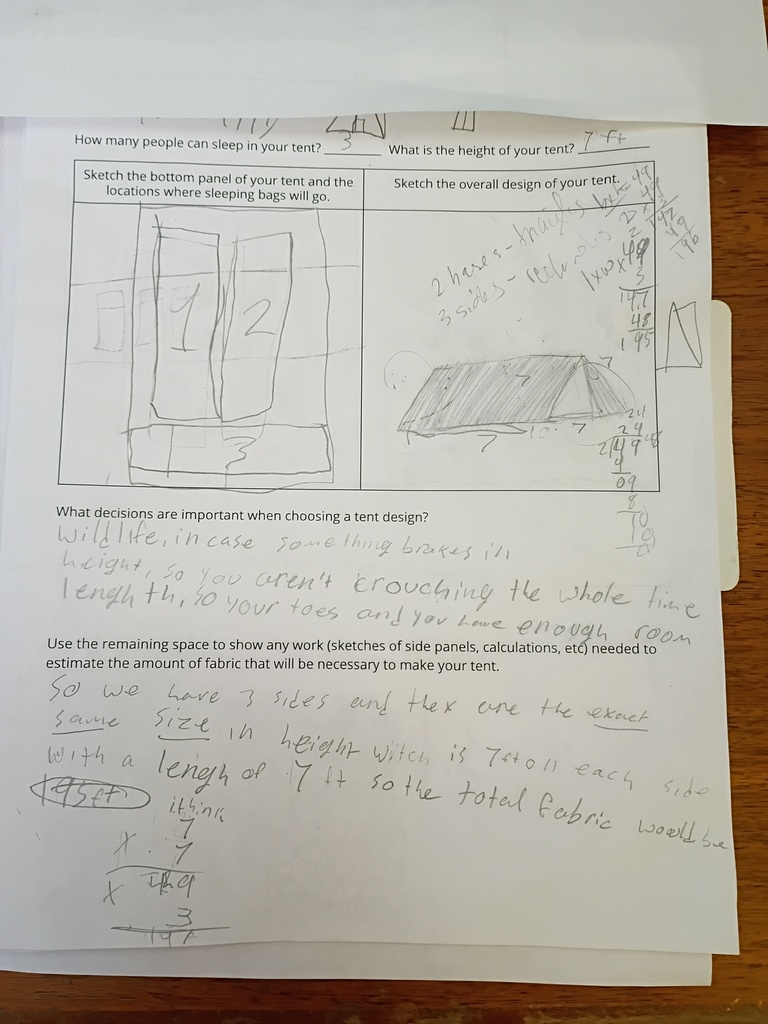 How many people can sleep in your tent? 3 What is the height of your tent? 7 ft
Sketch the bottom panel of your tent and the
locations where sleeping bags will go.
1 2
3
Sketch the overall design of your tent.
2 bases - triangles bxh=49
3 sides - lxw
2
2
x 49
3
147
48
195
49
3
147
49
196
7
7
7
10
7
24
24
2 49 48
4
09
8
10
10
0
What decisions are important when choosing a tent design?
Wildlife, in case something brakes in
height, so you aren't crouching the whole time
length th, so your toes and you have enough room
Use the remaining space to show any work (sketches of side panels, calculations, etc) needed to
estimate the amount of fabric that will be necessary to make your tent.
So we have 3 sides and they are the exact
same size in height witch is 7ft on each side
with a lengh of 7 ft so the total fabric would be
195ft
ithink
7
x 7
x 49
3
147